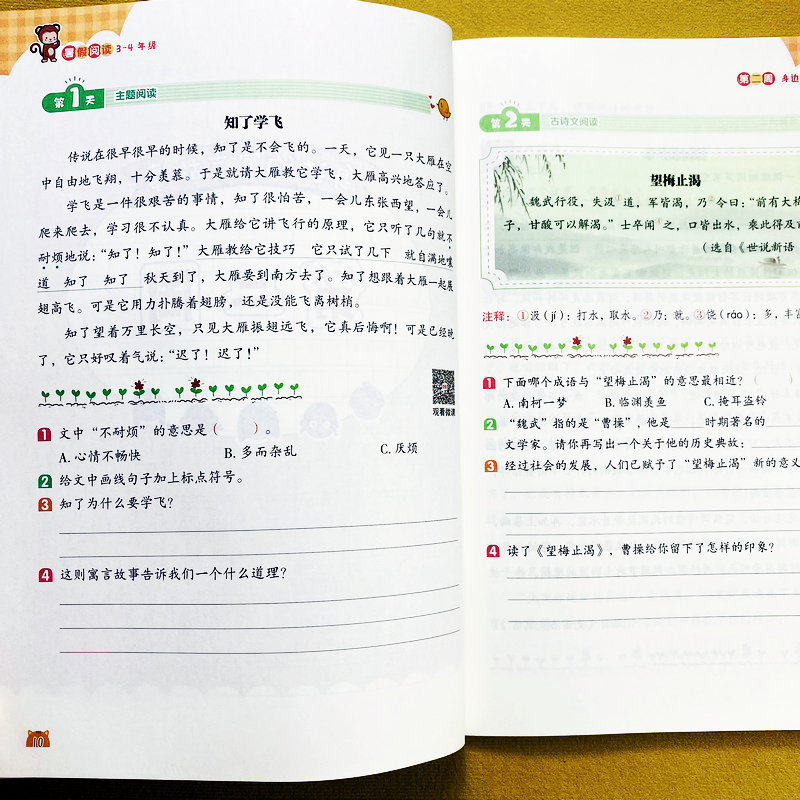 暑假阅读 3-4年级
第1天 主题阅读
知了学飞
传说在很早很早的时候，知了是不会飞的。一天，它见一只大雁在空
中自由地飞翔，十分羡慕。于是就请大雁教它学飞，大雁高兴地答应了。
学飞是一件很艰苦的事情，知了很怕苦，一会儿东张西望，一会儿
爬来爬去，学习很不认真。大雁给它讲飞行的原理，它只听了几句就不
耐烦地说：“知了！知了！”大雁教给它技巧 它只试了几下 就自满地嚷
道 知了 知了 秋天到了，大雁要到南方去了。知了想跟着大雁一起展
翅高飞。可是它用力扑腾着翅膀，还是没能飞离树梢。
知了望着万里长空，只见大雁振翅远飞，它真后悔啊！可是已经晚
了，它只好叹着气说：“迟了！迟了！”
观看微课
1 文中“不耐烦”的意思是（ ）。
A.心情不畅快 B.多而杂乱 C.厌烦
2 给文中画线句子加上标点符号。
3 知了为什么要学飞？
4 这则寓言故事告诉我们一个什么道理？
10
第二周 身边
第2天 古诗文阅读
望梅止渴
魏武行役，失汲①道，军皆渴，乃②令曰：“前有大梅
子，甘酸可以解渴。”士卒闻之，口皆出水，乘此得及前
（选自《世说新语
注释：①汲（jí）：打水，取水。②乃：就。③饶（ráo）：多，丰富
1 下面哪个成语与“望梅止渴”的意思最相近？（ ）
A.南柯一梦 B.临渊羡鱼 C.掩耳盗铃
2 “魏武”指的是“曹操”，他是 时期著名的
文学家。请你再写出一个关于他的历史典故：
3 经过社会的发展，人们已赋予了“望梅止渴”新的意义
4 读了《望梅止渴》，曹操给你留下了怎样的印象？